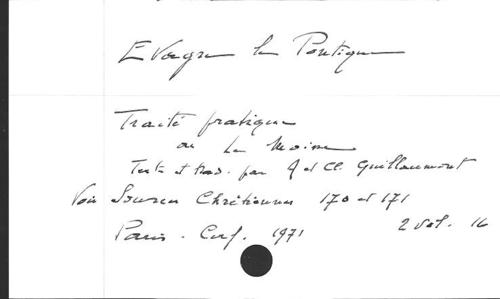 Evagre le Pontique
Traité pratique
ou Le Moine
Texte et trad. par A et Cl. Guillaumont
Voir Sources Chrétiennes 170 et 171
Paris. Cerf. 1971 2 vol. 16